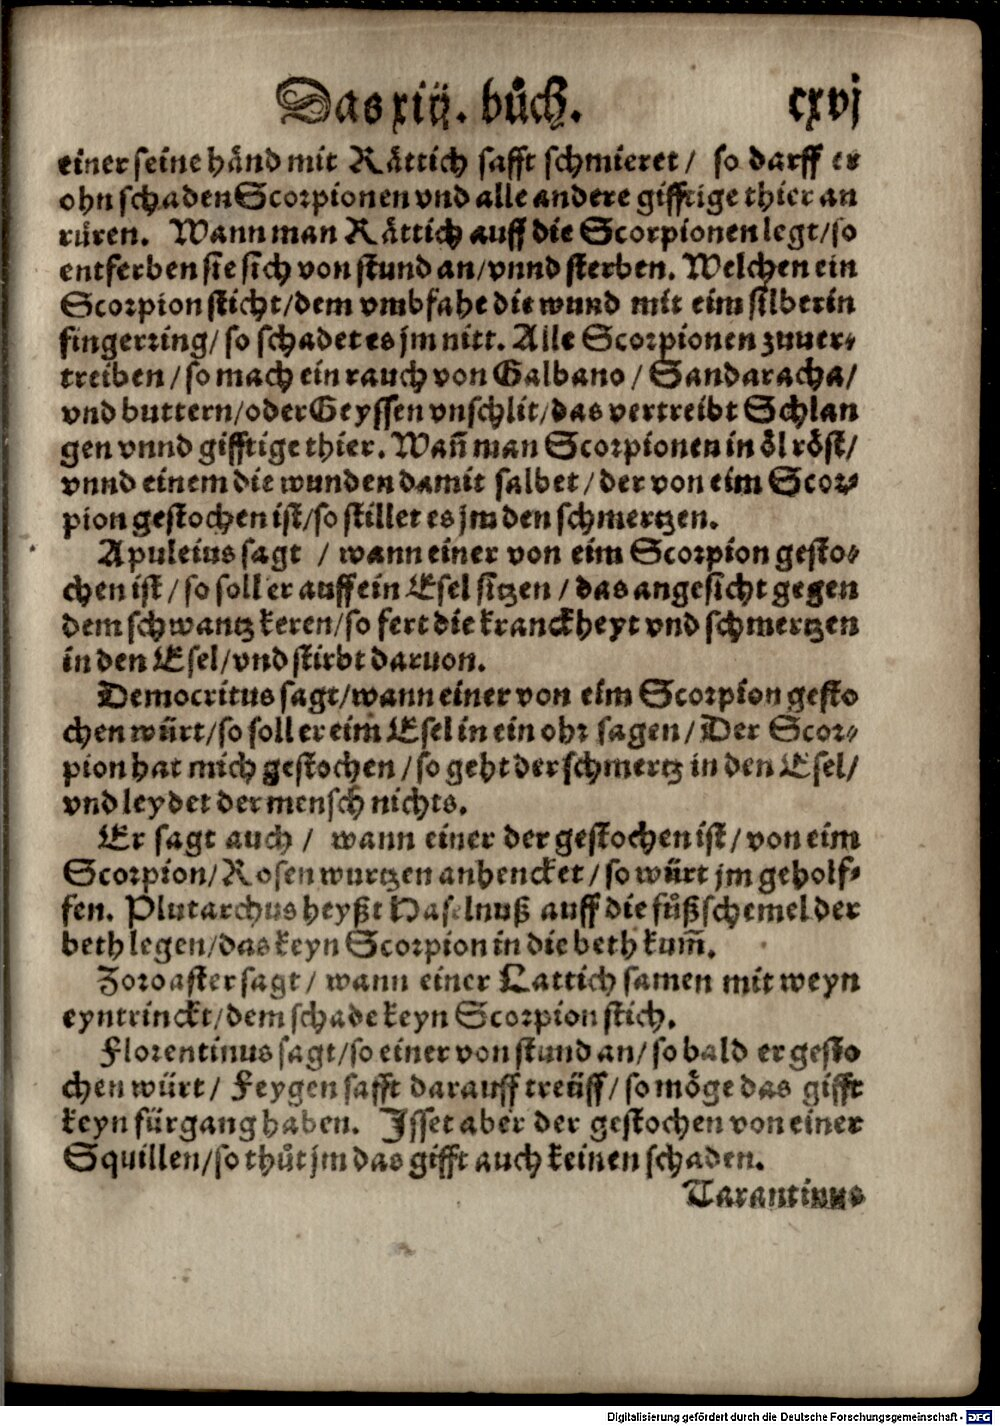 Das xiij. bůch. cxvj
einer seine händ mit Rättich safft schmieret / so darff er
ohn schaden Scorpionen vnd alle andere gifftige thier an
rüren. Wann man Rättich auff die Scorpionen legt/so
entferben sie sich von stund an/vnnd sterben. Welchen ein
Scorpion sticht/dem vmbfahe die wund mit eim silberin
fingerring/ so schadet es jm nitt. Alle Scorpionen zuuer-
treiben / so mach ein rauch von Galbano / Sandaracha/
vnd buttern/oder Geyssen vnschlit/das vertreibt Schlan
gen vnnd gifftige thier. Wañ man Scorpionen in öl röst/
vnnd einem die wunden damit salbet / der von eim Scor-
pion gestochen ist/so stillet es jm den schmertzen.
Apuleius sagt / wann einer von eim Scorpion gesto-
chen ist / so soll er auff ein Esel sitzen / das angesicht gegen
dem schwantz keren/so fert die kranckheyt vnd schmertzen
in den Esel/vnd stirbt daruon.
Democritus sagt/wann einer von eim Scorpion gesto
chen würt/so soll er eim Esel in ein ohr sagen / Der Scor-
pion hat mich gestochen / so geht der schmertz in den Esel/
vnd leydet der mensch nichts.
Er sagt auch / wann einer der gestochen ist / von eim
Scorpion/Rosen wurtzen anhencket / so würt jm geholf-
fen. Plutarchus heyßt Haselnuß auff die füßschemel der
beth legen/das keyn Scorpion in die beth kum̃.
Zoroaster sagt / wann einer Lattich samen mit weyn
eyntrinckt/dem schade keyn Scorpion stich.
Florentinus sagt/so einer von stund an/so bald er gesto
chen würt / Feygen safft darauff treüff/so möge das gifft
keyn fürgang haben. Isset aber der gestochen von einer
Squillen/so thůt jm das gifft auch keinen schaden.
Tarantinus
Digitalisierung gefördert durch die Deutsche Forschungsgemeinschaft - DFG